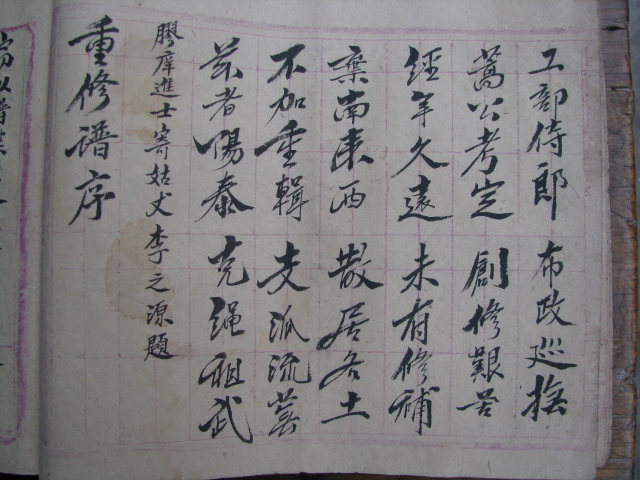 工部侍郎 布政巡撫
蒿公考定 創修艱苦
經年久遠 未有修補
棄南東西 散居各土
不加重輯 支派流蕓
茲者陽泰 克绳祖武
膠庠進士寄姑丈李之源題
重修譜序